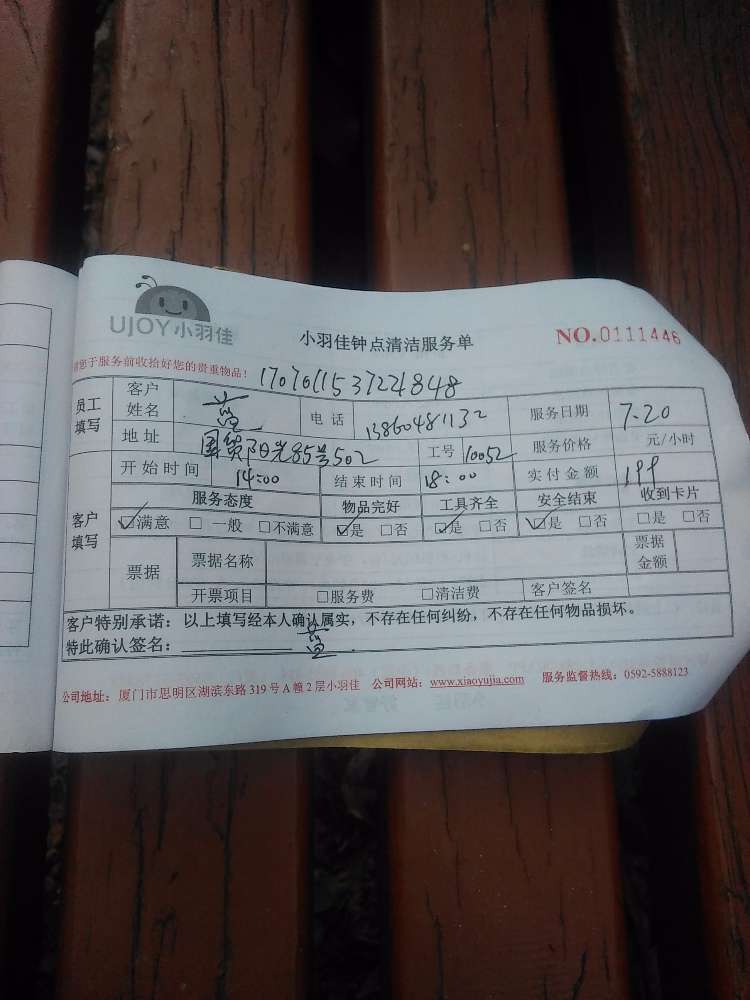 UJOY小羽佳
小羽佳钟点清洁服务单
NO.0111446
您于服务前收拾好您的贵重物品!
员工填写
客户姓名 蓝 电话 13860481132 服务日期 7.20
地址 国贸阳光85号502 工号 10052 服务价格 元/小时
开始时间 14:00 结束时间 18:00 实付金额 199
客户填写
服务态度 物品完好 工具齐全 安全结束 收到卡片
☑满意 □一般 □不满意 ☑是 □否 ☑是 □否 ☑是 □否 □是 □否
票据 票据名称 票据金额
开票项目 □服务费 □清洁费 客户签名
客户特别承诺:以上填写经本人确认属实,不存在任何纠纷,不存在任何物品损坏。
特此确认签名: 蓝
公司地址:厦门市思明区湖滨东路319号A幢2层小羽佳 公司网站:www.xiaoyujia.com 服务监督热线:0592-5888123